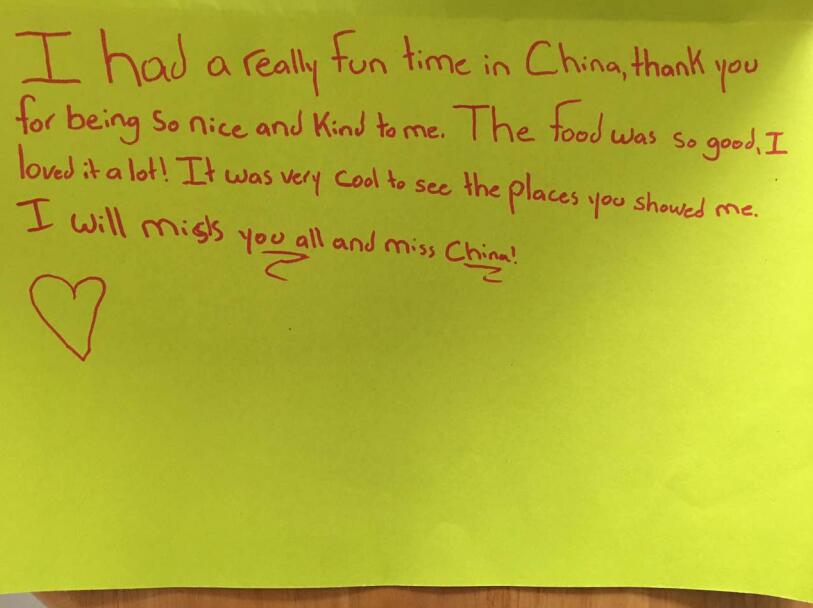 I had a really fun time in China, thank you
for being so nice and kind to me. The food was so good, I
loved it a lot! It was very cool to see the places you showed me.
I will miss you all and miss China!